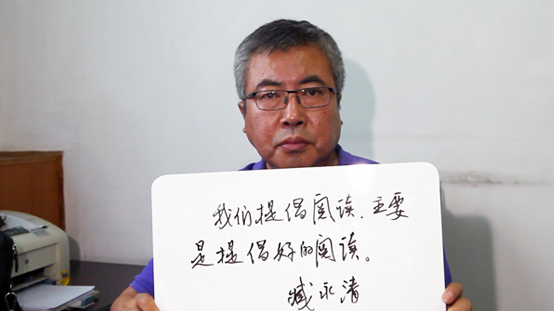 我们提倡阅读,主要
是提倡好的阅读。
臧永清